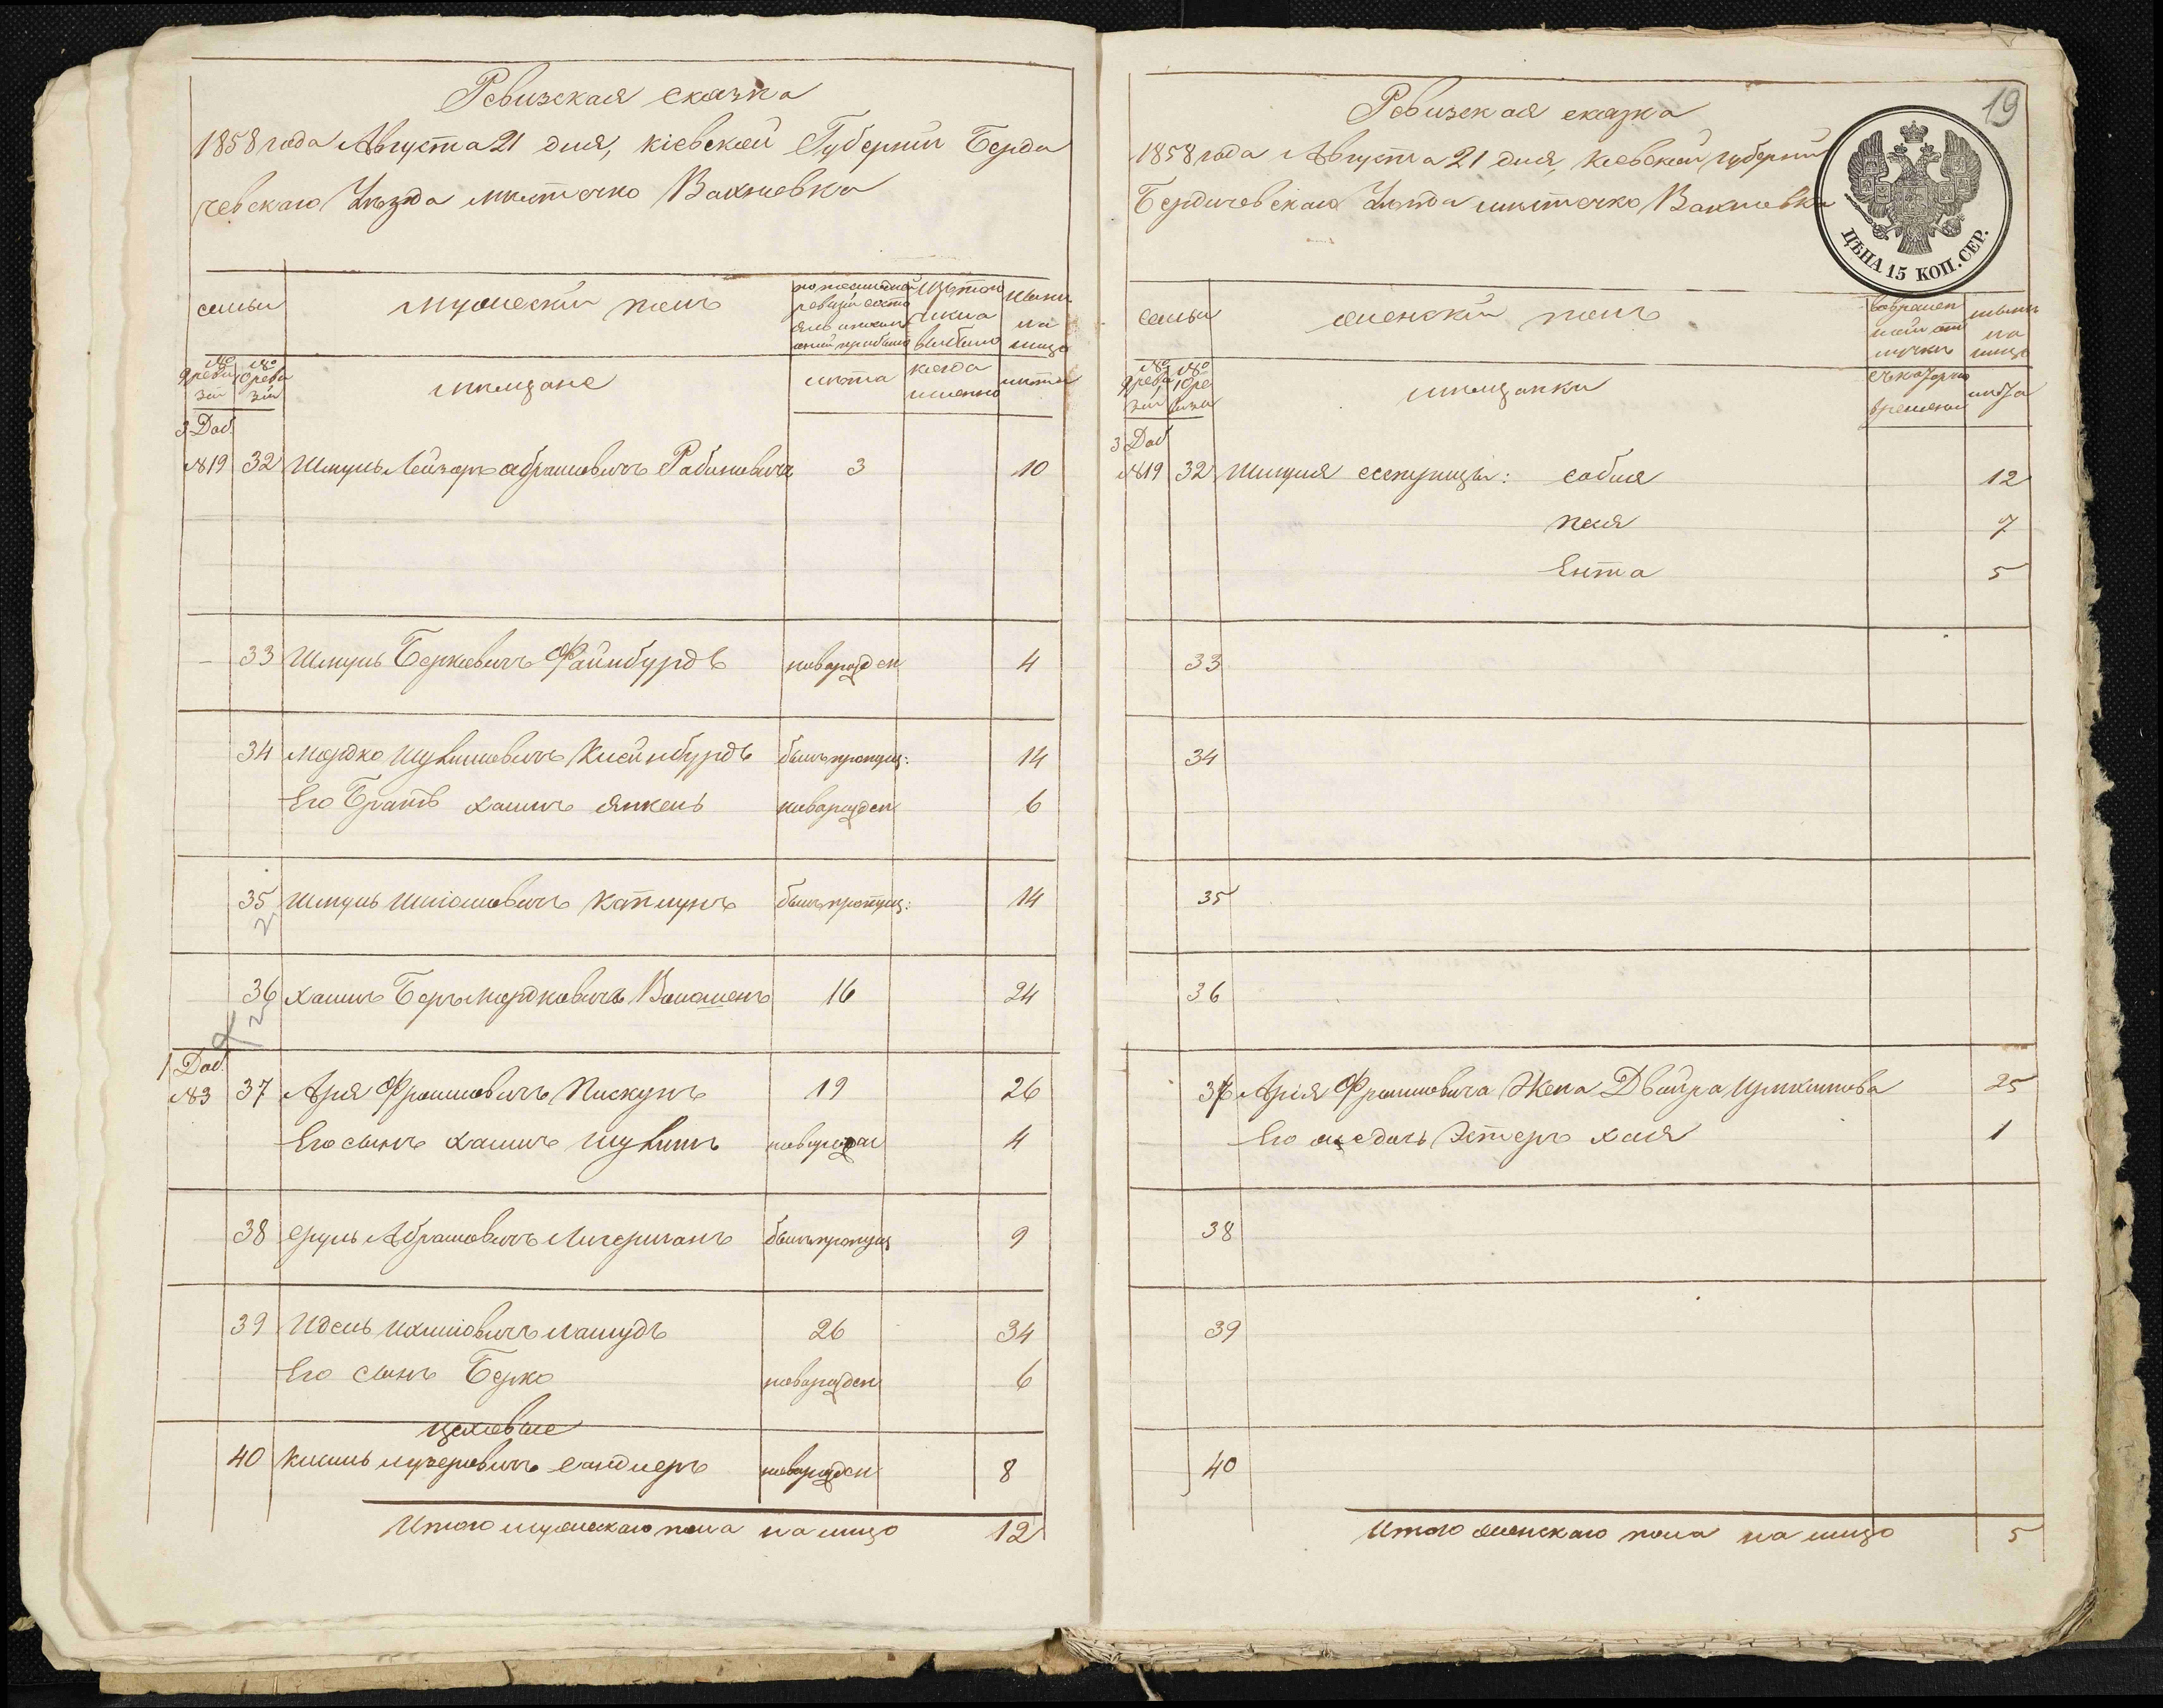 Ревизская сказка
1858 года Августа 21 дня, Кіевской Губерніи Берди
чевскаго Уѣзда мѣстечко Вахновка
семьи
Мужескій полъ
по послѣдней ревизіи состояло и послѣ оной прибыло
Изъ того числа выбыло
Нынѣ на лицо
№ 9 ревизіи
№ 10 ревизіи
мѣщане
лѣта
когда именно
лѣта
3 Доб.
№19 32 Шмуль Лейзоръ Абрамовичъ Рабиновичъ 3 10
33 Шмуль Берковичъ Файнбурдъ новорожден 4
34 Мордко Шулимовичъ Клейнбурдъ былъ пропущ: 14
Его Братъ Хаимъ Янкель новорожден 6
35 Шмуль Шліомовичъ Каплунъ былъ пропущ: 14
36 Хаимъ Беръ Мордковичъ 16 24
1 Доб.
№3 37 Арія Фроимовичъ Пискунъ 19 26
Его сынъ Хаимъ Шулимъ новорожден 4
38 Сруль Абрамовичъ былъ пропущ 9
39 Идель 26 34
Его сынъ Берко новорожден 6
цеховые
40 Кисиль Лузеровичъ Сандлеръ новорожден 8
Итого мужескаго пола на лицо 12
19
Ревизская сказка
1858 года Августа 21 дня, Кіевской губерніи
Бердичевскаго Уѣзда мѣстечко Вахновка
ЦѢНА 15 КОП. СЕР.
семьи
женскій полъ
во временной отлучкѣ
нынѣ на лицо
№ 9 ревизіи
№ 10 ревизіи
мѣщанки
съ котораго времени
лѣта
3 Доб
№19 32 Шмуля сестрицы: Собля 12
Пея 7
Ента 5
33
34
35
36
37 Арія Фроимовича Жена Двойра Ицковна 25
Его же дочь Эстеръ Хая 1
38
39
40
Итого женскаго пола на лицо 5